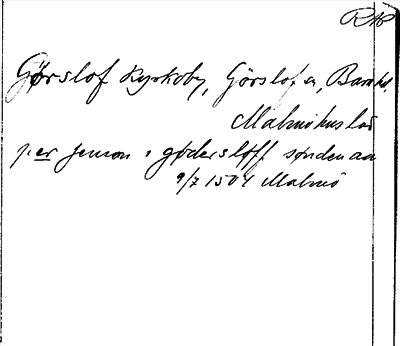 RAP
Görslöf Kyrkoby, Görslöfs sn, Barahd.
Malmöhus län
per jenson i gødersløff sønden aa
9/7 1504 Malmö